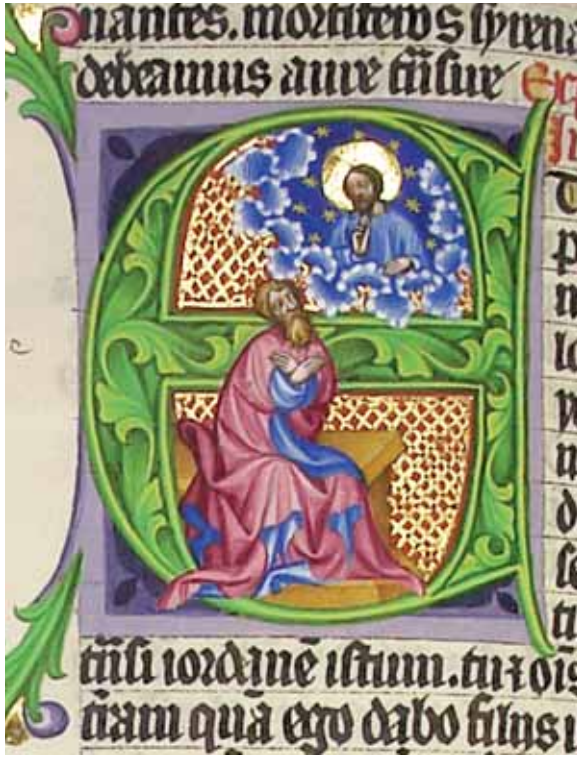 nantes. mortiferos syrena
debeamus aure tñsire
E
tñsi iordanē istum. tu ⁊ oīs
trām quā ego dabo filijs i